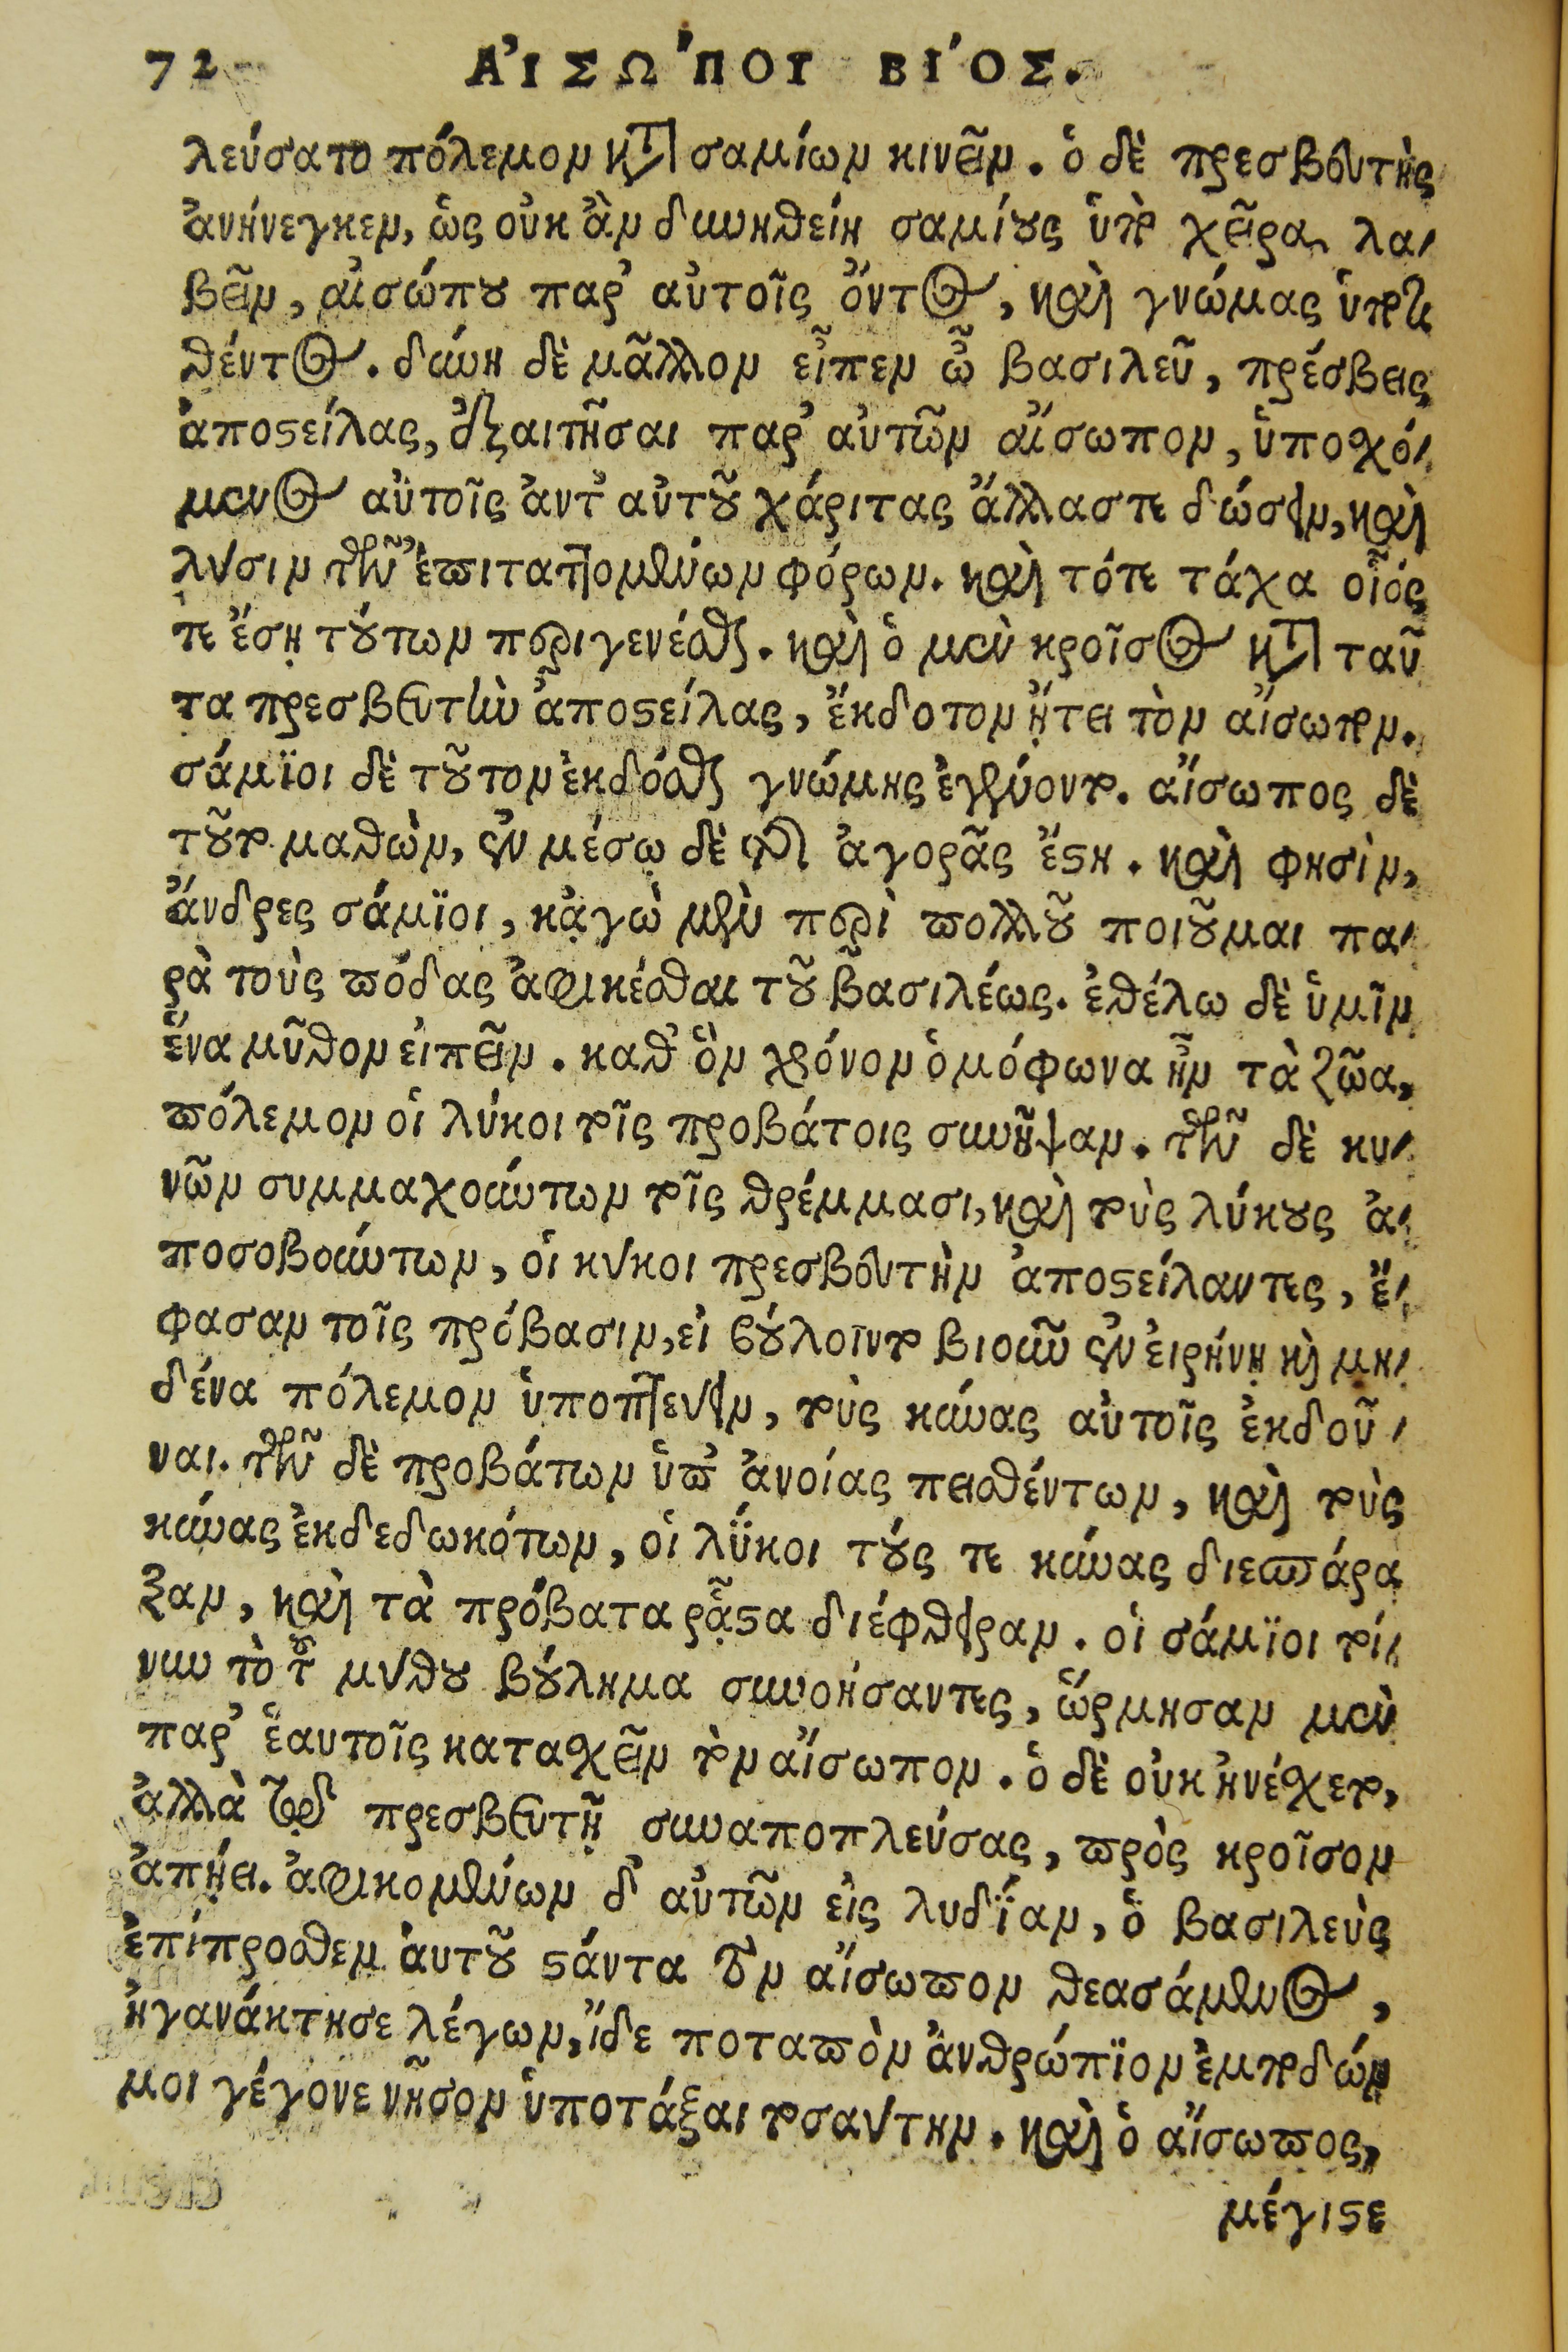 72 ΑἸΣΩΠΟΥ ΒΙΟΣ.
λεύσατο πόλεμον κατὰ σαμίων κινεῖν. ὁ δὲ πρεσβευτὴς
ἀνήνεγκεν, ὡς οὐκ ἂν δυνηθείη σαμίους ὑπὸ χεῖρα λα-
βεῖν, αἰσώπου παρ' αὐτοῖς ὄντος, καὶ γνώμας ὑποτι
θέντος. δύνῃ δὲ μᾶλλον εἶπεν ὦ βασιλεῦ, πρέσβεις
ἀποστείλας, ἐξαιτῆσαι παρ' αὐτῶν αἴσωπον, ὑποσχό-
μενος αὐτοῖς ἀντ' αὐτοῦ χάριτας ἄλλας τε δώσειν, καὶ
λύσιν τῶν ἐπιταττομένων φόρων. καὶ τότε τάχα οἷός
τε ἔσῃ τούτων περιγενέσθαι. καὶ ὁ μὲν κροῖσος κατὰ ταῦ
τα πρεσβευτὴν ἀποστείλας, ἔκδοτον ᾔτει τὸν αἴσωπον.
σάμϊοι δὲ τοῦτον ἐκδόσθαι γνώμης ἐγένοντο. αἴσωπος δὲ
τοῦτο μαθὼν, ἐν μέσῳ δὲ τῆς ἀγορᾶς ἔστη. καὶ φησὶν,
ἄνδρες σάμϊοι, κᾀγὼ μὲν περὶ πολλοῦ ποιοῦμαι πα-
ρὰ τοὺς πόδας ἀφικέσθαι τοῦ βασιλέως. ἐθέλω δὲ ὑμῖν
ἕνα μῦθον εἰπεῖν. καθ' ὃν χρόνον ὁμόφωνα ἦν τὰ ζῶα,
πόλεμον οἱ λύκοι τοῖς προβάτοις συνῆψαν. τῶν δὲ κυ-
νῶν συμμαχούντων τοῖς θρέμμασι, καὶ τοὺς λύκους ἀ-
ποσοβούντων, οἱ κύκοι πρεσβευτὴν ἀποστείλαντες, ἔ-
φασαν τοῖς πρόβασιν, εἰ βούλοιντο βιοῦν ἐν εἰρήνῃ καὶ μη-
δένα πόλεμον ὑποπτεύειν, τοὺς κύνας αὐτοῖς ἐκδοῦ-
ναι. τῶν δὲ προβάτων ὑπ' ἀνοίας πεισθέντων, καὶ τοὺς
κύνας ἐκδεδωκότων, οἱ λύκοι τούς τε κύνας διεσπάρα
ξαν, καὶ τὰ πρόβατα ῥᾷστα διέφθειραν. οἱ σάμϊοι τοί-
νυν τὸ τοῦ μύθου βούλημα συνοήσαντες, ὥρμησαν μὲν
παρ' ἑαυτοῖς κατασχεῖν τὸν αἴσωπον. ὁ δὲ οὐκ ἠνέσχετο,
ἀλλὰ τῷ πρεσβευτῇ συναποπλεύσας, πρὸς κροῖσον
ἀπῄει. ἀφικομένων δ' αὐτῶν εἰς λυδΐαν, ὁ βασιλεὺς
ἐπίπροσθεν αὑτοῦ στάντα τὸν αἴσωπον θεασάμενος,
ἠγανάκτησε λέγων, ἴδε ποταπὸν ἀνθρώπϊον ἐμποδών
μοι γέγονε νῆσον ὑποτάξαι τοσαύτην. καὶ ὁ αἴσωπος,
μέγιστε